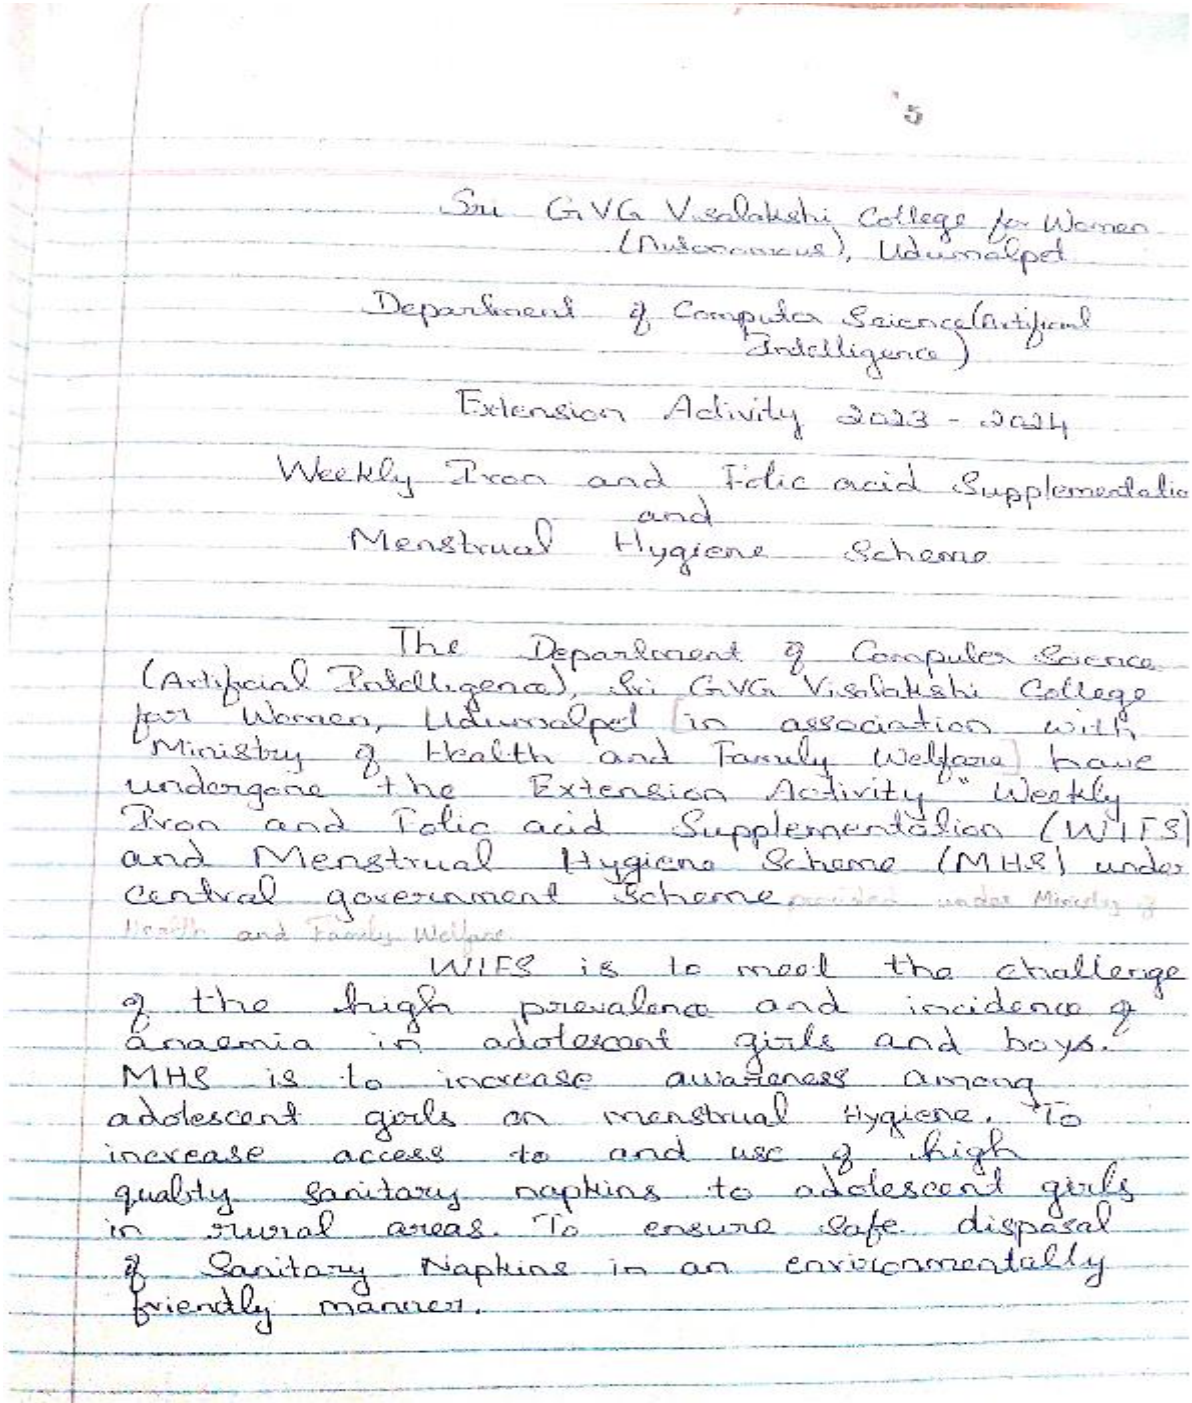 5
Sri GVG Visalakshi College for Women
(Autonomous), Udumalpet
Department of Computer Science (Artificial
Intelligence)
Extension Activity 2023 - 2024
Weekly Iron and Folic acid Supplementatio
and
Menstrual Hygiene Scheme
The Department of Computer Science
(Artificial Intelligence), Sri GVG Visalakshi College
for Women, Udumalpet [in association with
Ministry of Health and Family Welfare] have
undergone the Extension Activity "Weekly
Iron and Folic acid Supplementation (WIFS)
and Menstrual Hygiene Scheme (MHS) under
central government Scheme provided under Ministry of
Health and Family Welfare.
WIFS is to meet the challenge
of the high prevalence and incidence of
anaemia in adolescent girls and boys.
MHS is to increase awareness among
adolescent girls on menstrual Hygiene. To
increase access to and use of high
quality sanitary napkins to adolescent girls
in rural areas. To ensure safe disposal
of Sanitary Napkins in an environmentally
friendly manner.